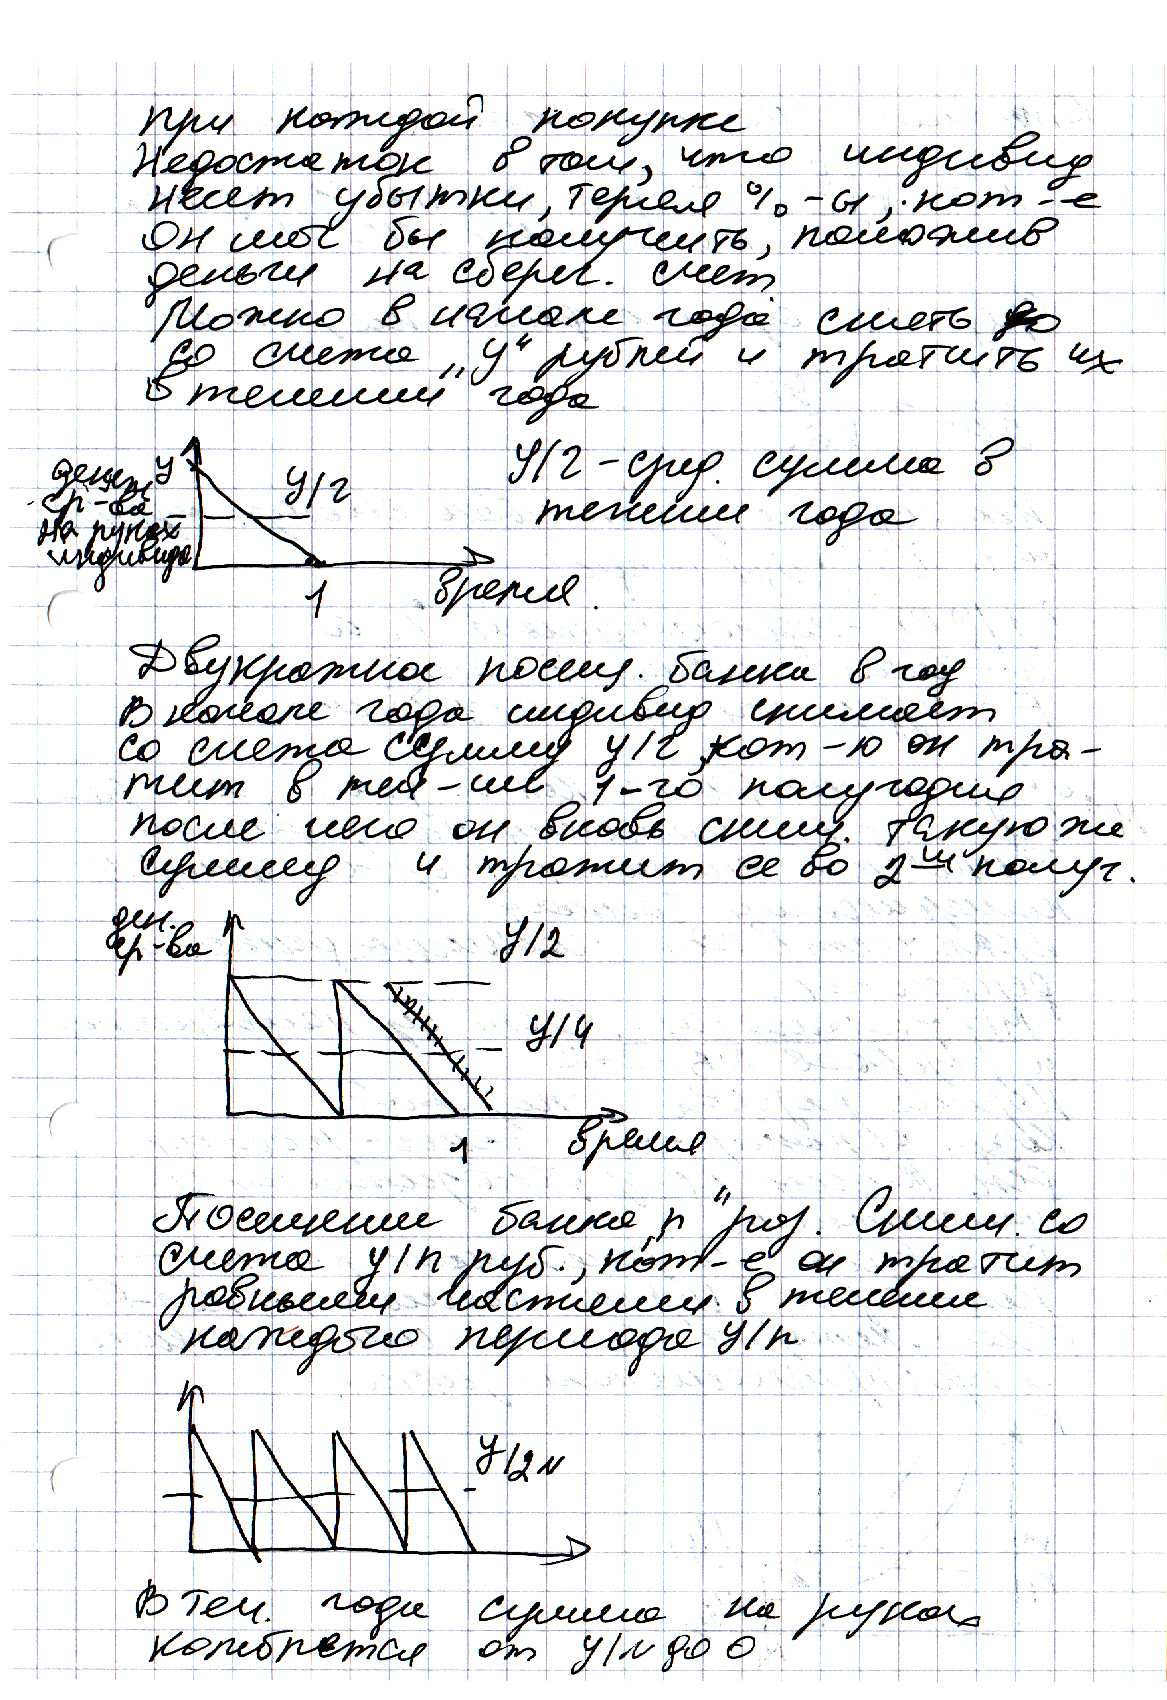 при каждой покупке
Недостаток в том, что индивид
несет убытки, теряя %-ы, кот-е
он мог бы получить, положив
деньги на сберег. счет
Можно в начале года снять
со счета „Y“ рублей и тратить их
в течении года
Y
денеж
ср-ва
на руках
индивида
Y/2
1
время
Y/2 - сред. сумма в
течении года
Двукратное посещ. банка в год
В начале года индивид снимает
со счета сумму Y/2, кот-ю он тра-
тит в теч-ии 1-го полугодия
после чего он вновь сним. такую же
сумму и тратит ее во 2-ом полуг.
ден.
ср-ва
Y/2
Y/4
1
время
Посещении банка „n“ раз. Сним. со
счета Y/n руб., кот-е он тратит
равными частями в течении
каждого периода Y/n
Y/2n
В теч. года сумма на руках
колеблется от Y/n до 0